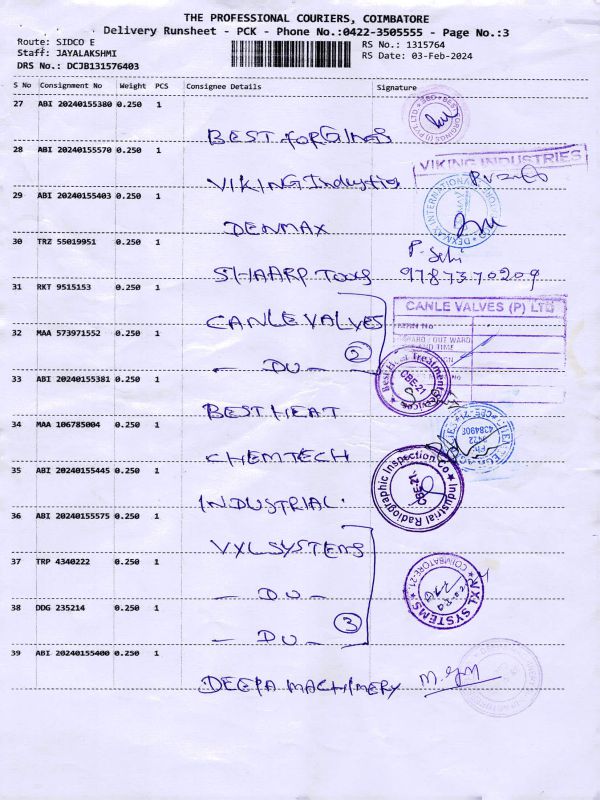 THE PROFESSIONAL COURIERS, COIMBATORE
Delivery Runsheet - PCK - Phone No.:0422-3505555 - Page No.:3
Route: SIDCO E
Staff: JAYALAKSHMI
DRS No.: DCJB131576403
RS No.: 1315764
RS Date: 03-Feb-2024
S No Consignment No Weight PCS Consignee Details Signature
27 ABI 20240155380 0.250 1
BEST forGings
28 ABI 20240155570 0.250 1
VIKING INDUSTRIES
VIKING Industries
29 ABI 20240155403 0.250 1
DENMAX
30 TRZ 55019951 0.250 1
SHAARP Tools 9787370209
31 RKT 9515153 0.250 1
CANLE VALVES (P) LTD
CANLE VALVES
32 MAA 573971552 0.250 1
- DO - 2
Best Heat Treatment Services
CBE-21
33 ABI 20240155381 0.250 1
BEST HEAT
34 MAA 106785004 0.250 1
CHEMTECH
35 ABI 20240155445 0.250 1
Industrial Radiographic Inspection Co
CBE-21
INDUSTRIAL.
36 ABI 20240155575 0.250 1
VXL SYSTEMS
37 TRP 4340222 0.250 1
VXL SYSTEMS
COIMBATORE-21
- DO -
38 DDG 235214 0.250 1
- DO - 3
39 ABI 20240155400 0.250 1
DEEPA MACHINERY